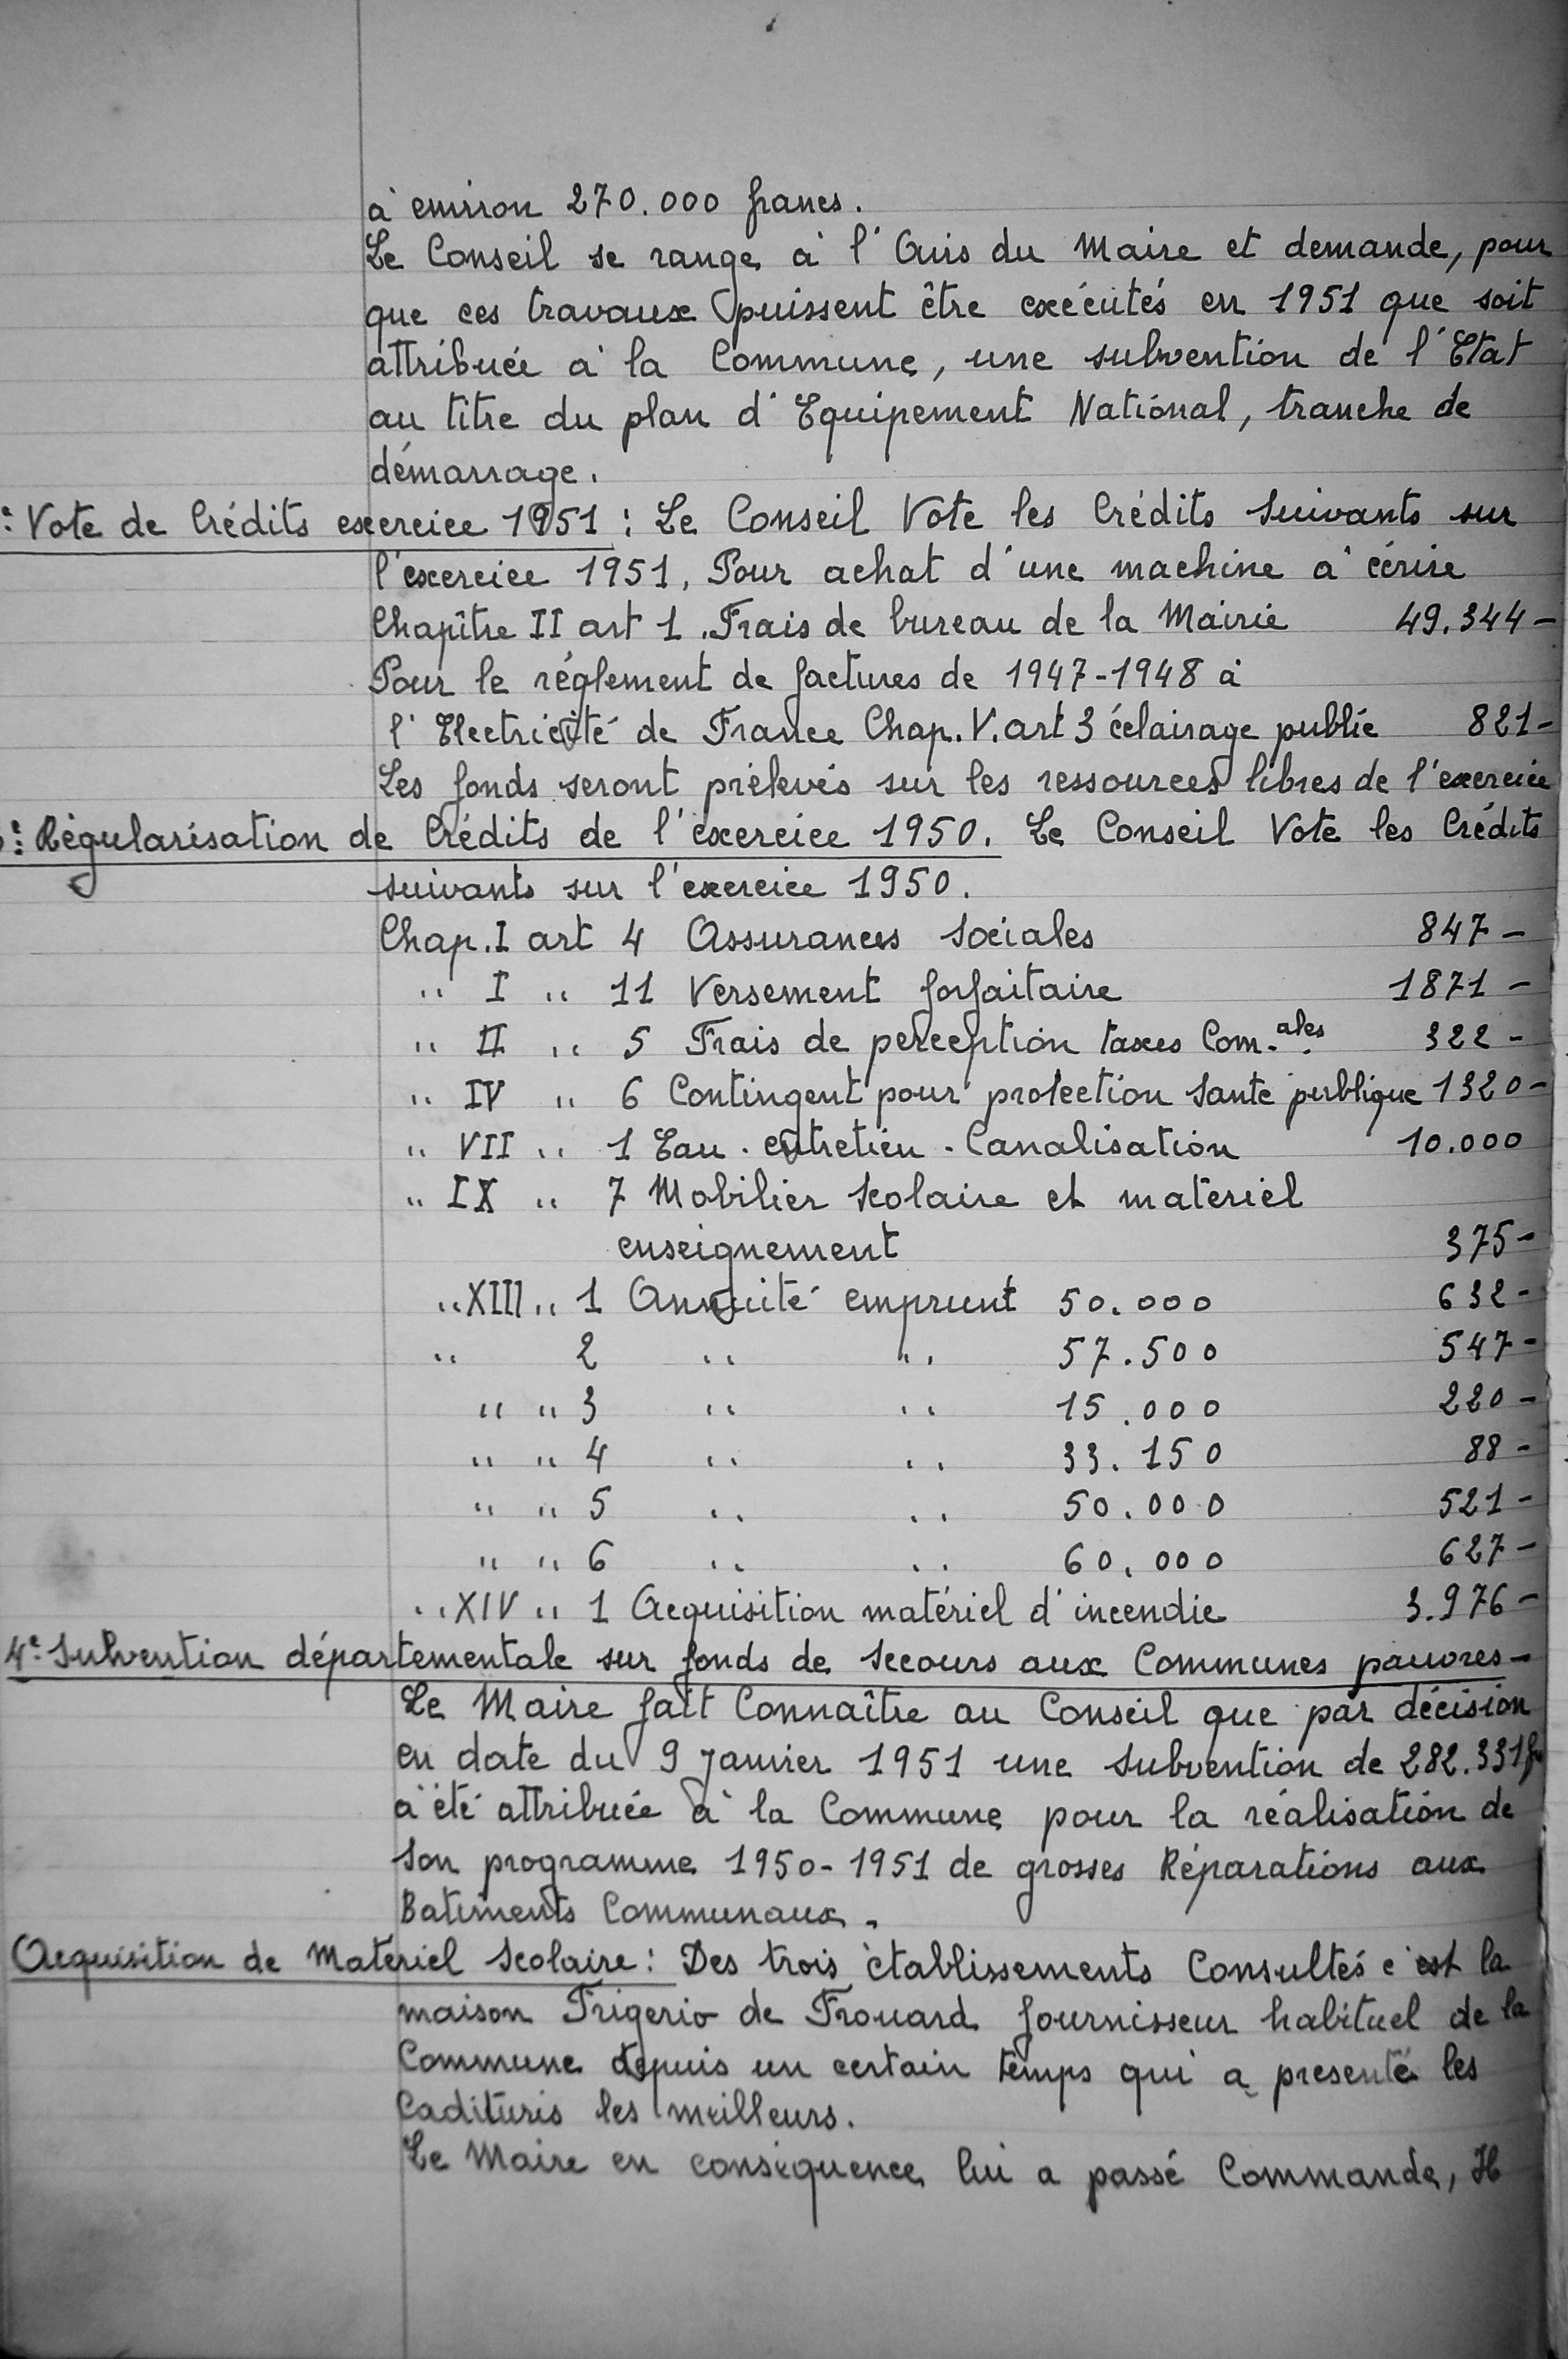 à environ 270.000 francs.
Le Conseil se range à l'Avis du Maire et demande, pour
que ces travaux puissent être exécutés en 1951 que soit
attribuée à la Commune, une subvention de l'Etat
au titre du plan d'Equipement National, tranche de
démarrage.
: Vote de Crédits exercice 1951 : Le Conseil Vote les Crédits Suivants sur
l'exercice 1951, Pour achat d'une machine à écrire
Chapître II art 1. Frais de bureau de la Mairie 49.344 -
Pour le réglement de factures de 1947-1948 à
l'Electricité de France Chap. V. art 3 éclairage public 821 -
Les fonds seront prélevés sur les ressources libres de l'exercice
: Régularisation de Crédits de l'exercice 1950. Le Conseil Vote les Crédits
suivants sur l'exercice 1950.
Chap. I art 4 Assurances Sociales 847 -
" I " 11 Versement forfaitaire 1871 -
" II " 5 Frais de perception taxes Com.ales 322 -
" IV " 6 Contingent pour protection Santé publique 1320 -
" VII " 1 Eau - entretien - Canalisation 10.000
" IX " 7 Mobilier Scolaire et matériel
enseignement 375 -
" XIII " 1 Annuité emprunt 50.000 632 -
" 2 " " 57.500 547 -
" " 3 " " 15.000 220 -
" " 4 " " 33.150 88 -
" " 5 " " 50.000 521 -
" " 6 " " 60.000 627 -
" XIV " 1 Acquisition matériel d'incendie 3.976 -
4e: Subvention départementale sur fonds de Secours aux Communes pauvres -
Le Maire fait Connaître au Conseil que par décision
en date du 9 Janvier 1951 une Subvention de 282.331f
a été attribuée à la Commune pour la réalisation de
Son programme 1950-1951 de grosses Réparations aux
Batiments Communaux.
Acquisition de Matériel Scolaire : Des trois établissements Consultés c'est la
maison Frigerio de Frouard fournisseur habituel de la
Commune depuis un certain temps qui a présenté les
les meilleurs.
Le Maire en conséquence lui a passé Commande, Il